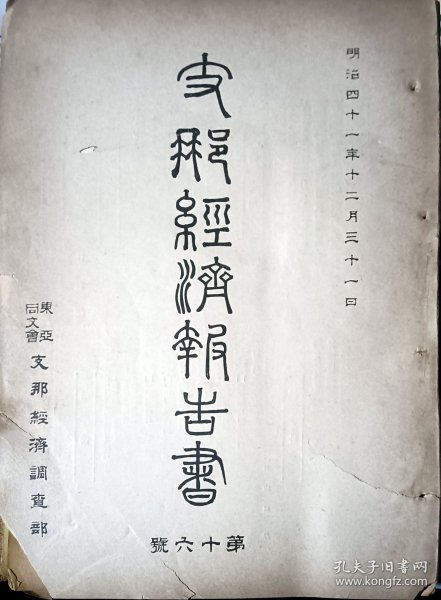 明治四十一年十二月三十一日
支那經濟報告書
第十六號
東亞同文會
支那經濟調査部
孔夫子旧书网
www.kongfz.com